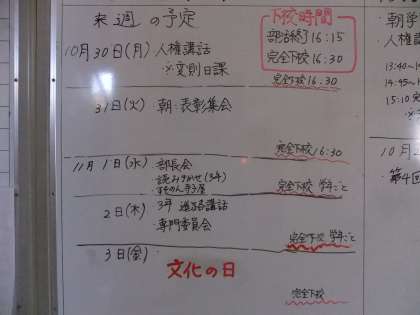 来週の予定
下校時間
部活終了16:15
完全下校16:30
10月30日(月) 人権講話
※変則日課
完全下校16:30
31日(火) 朝:表彰集会
完全下校16:30
11月1日(水) 部長会
・読みきかせ(3年)
完全下校 学年ごと
2日(木) 3年 進路講話
専門委員会
完全下校 学年ごと
3日(金)
文化の日
完全下校
朝学
・人権
13:40~1
14:45~1
15:10
10月2
第4回